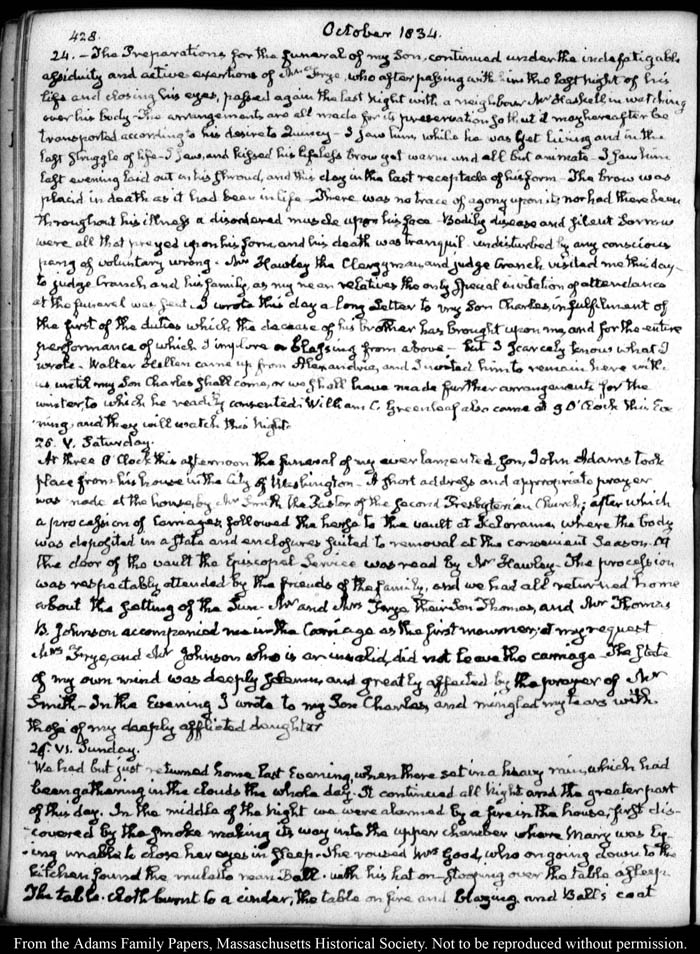 428.
October 1834.
24. - The Preparations for the funeral of my Son, continued under the indefatigable
assiduity and active exertions of Mr Frye, who after passing with him the last night of his
life and closing his eyes, passed again the last night with a neighbour Mr Haskell in watching
over his body. The arrangements are all made for its preservation so that it may hereafter be
transported according to his desire to Quincy - I saw him while he was yet living and in the
last struggle of life - I saw, and kissed his lifeless brow yet warm and all but animate - I saw him
last evening laid out in his shroud, and this day in the last receptacle of his form - The brow was
placid in death as it had been in life - There was no trace of agony upon it; nor had there been
throughout his illness a disordered muscle upon his face - Bodily disease and silent sorrow
were all that preyed upon his form and his death was tranquil undisturbed by any conscious
pang of voluntary wrong. Mr Hawley the Clergyman, and judge Cranch visited me this day -
to judge Cranch and his family, as my near relatives the only special invitation of attendance
at the funeral was sent. I wrote this day a long Letter to my Son Charles, in fulfilment of
the first of the duties which the decease of his brother has brought upon me, and for the entire
performance of which I implore a blessing from above - but I scarcely know what I
wrote - Walter Hellen came up from Alexandria, and I invited him to remain here with
us until my Son Charles shall come, or we shall have made further arrangements for the
winter, to which he readily consented. William C. Greenleaf also came at 9 O'Clock this Eve-
ning, and they will watch this Night.
25. V. Saturday.
At three O'Clock this afternoon the funeral of my ever lamented Son, John Adams took
place from his house in the City of Washington - A short address and appropriate prayer
was made at the house, by Mr Smith the Pastor of the Second Presbyterian Church; after which
a procession of Carriages, followed the hearse to the vault at Kalorama, where the body
was deposited in a state and enclosures suited to removal at the convenient Season. At
the door of the vault the Episcopal Service was read by Mr Hawley - The procession
was respectably attended by the friends of the family, and we had all returned home
about the setting of the Sun. Mr and Mrs Frye, their Son Thomas, and Mr Thomas
B. Johnson accompanied me in the Carriage as the first mourner; at my request
Mrs Frye, and Mr Johnson who is an invalid, did not leave the carriage - The state
of my own mind was deeply solemn, and greatly affected by the prayer of Mr
Smith - In the Evening I wrote to my Son Charles, and mingled my tears with
those of my deeply afflicted daughter
26. VI. Sunday.
We had but just returned home last Evening, when there set in a heavy rain, which had
been gathering in the clouds the whole day. It continued all Night and the greater part
of this day. In the middle of the Night we were alarmed by a fire in the house, first dis-
-covered by the smoke making its way into the upper chamber where Mary was ly-
-ing unable to close her eyes in sleep - She roused Mrs Good, who on going down to the
kitchen found the mulatto man Ball - with his hat on - stooping over the table asleep
The table-cloth burnt to a cinder, the table on fire and blazing and Ball's coat
From the Adams Family Papers, Massachusetts Historical Society. Not to be reproduced without permission.